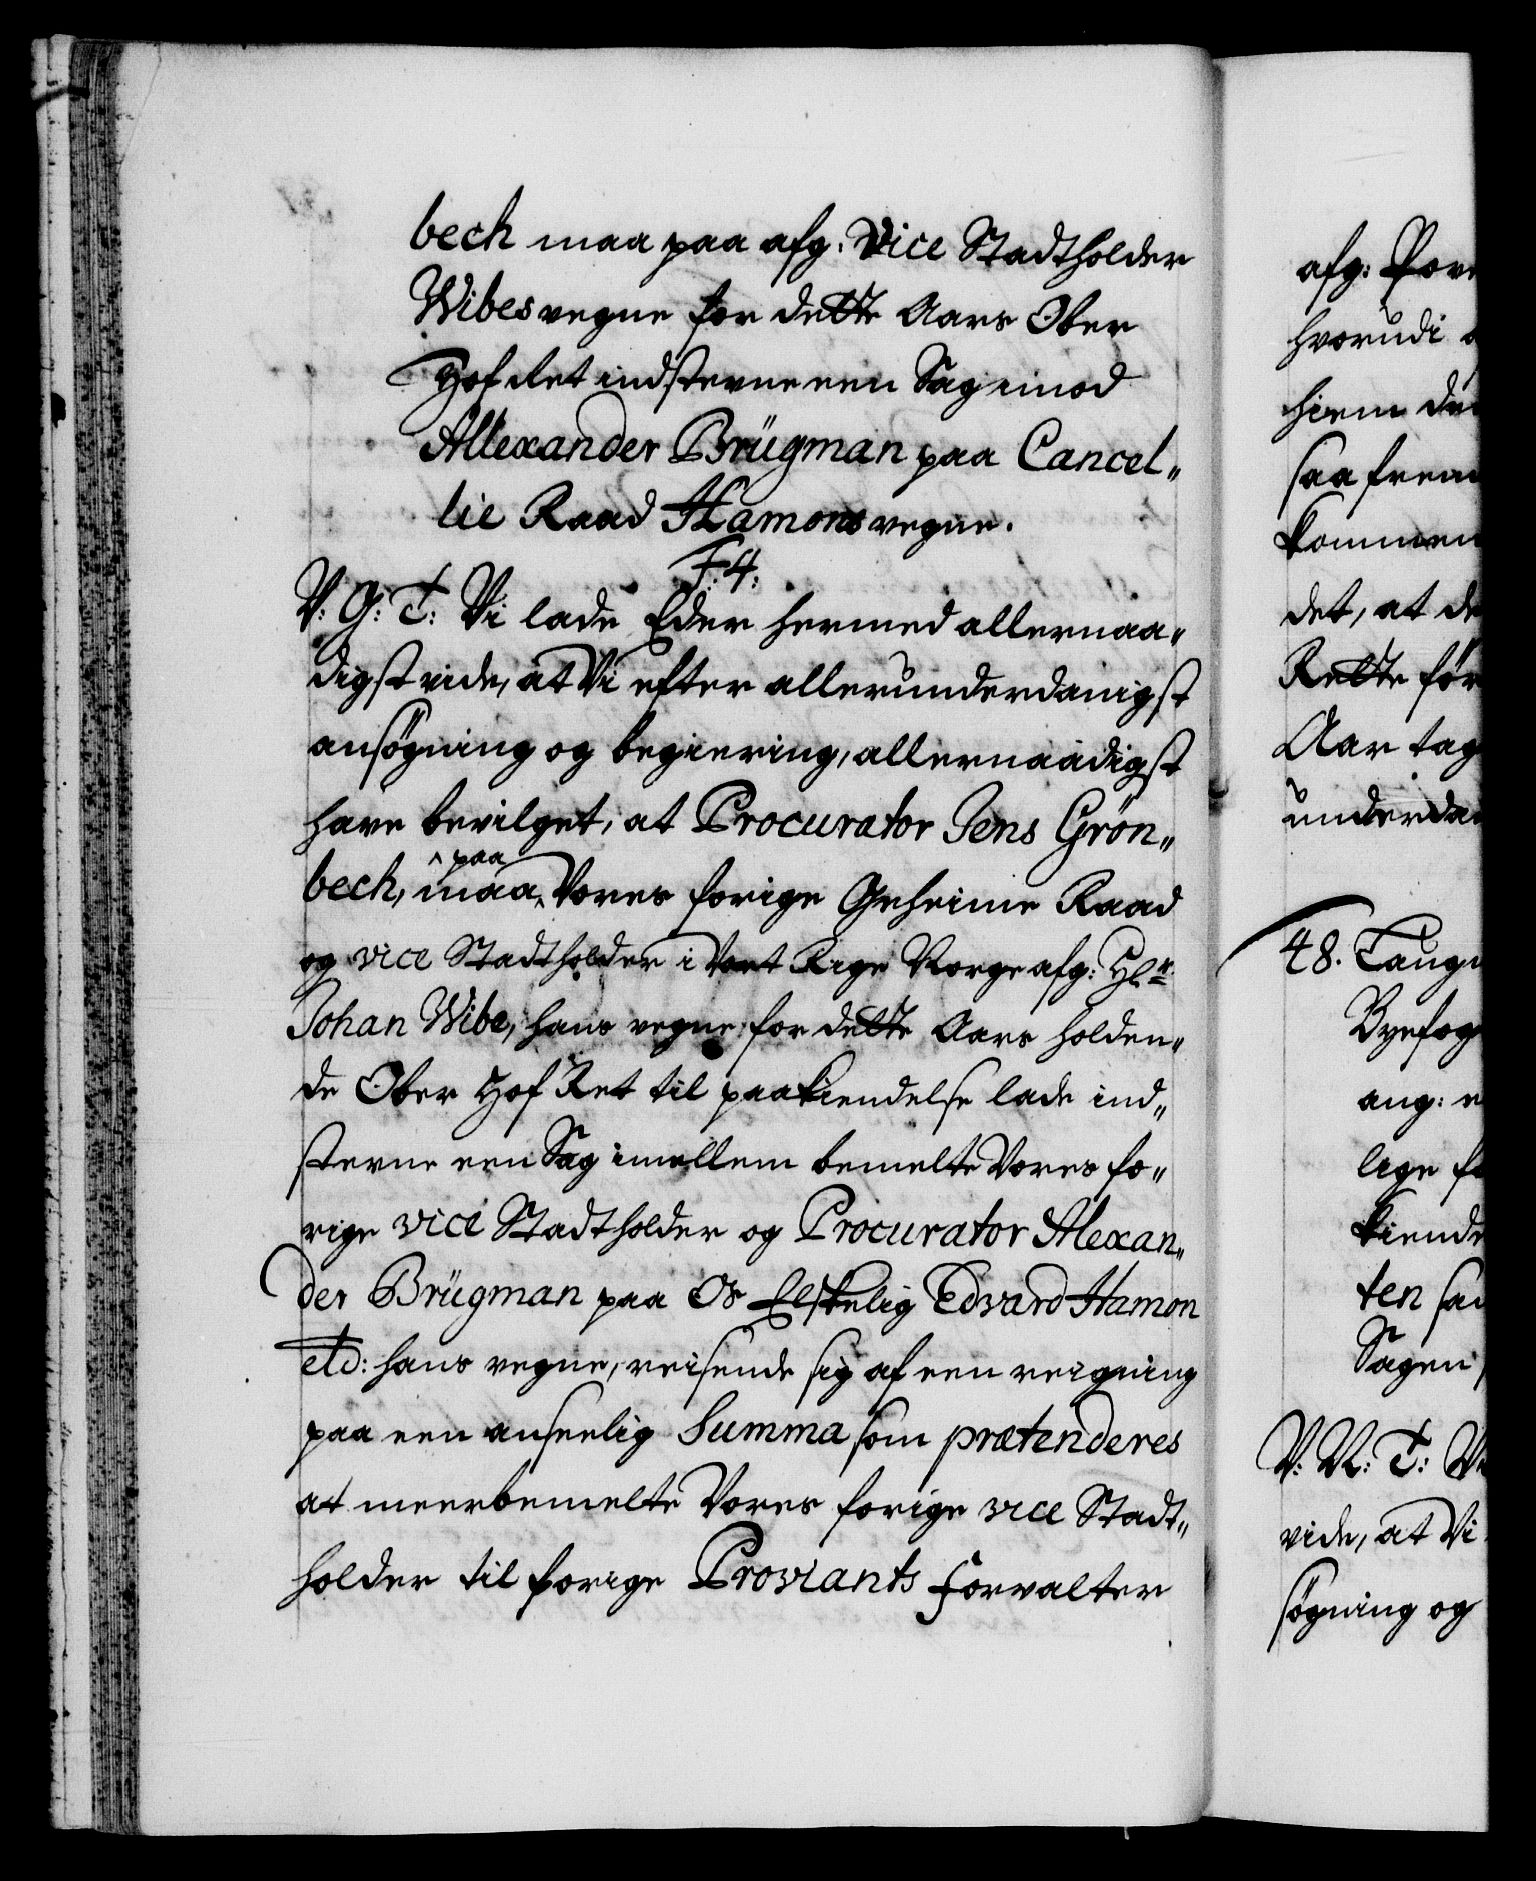 bech maa paa afg: Vice Stadtholder
Wibes vegne for dette Aars Ober
Hof Ret indstevne een Sag imod
Allexander Brügman paa Cancel„
lie Raad Hamons vegne.
F. 4.
V: G: T: Vi lade Eder hermed allernaa„
digst vide, at Vi efter allerunderdanigst
ansøgning og begiering, allernaadigst
have bevilget, at Procurator Jens Grøn„
bech, maa paa Vores forige Geheime Raad
og vice Stadtholder i Vort Rige Norge afg: Hr
Johan Wibe, hans vegne for dette Aars holden„
de Ober Hof Ret til paakiendelse lade ind„
stevne een Sag imellem bemelte Vores fo„
rige vice Stadtholder og Procurator Alexan„
der Brügman paa Os Elskelig Edvard Hamon
etc: hans vegne, reisende sig af een reigning
paa een anseelig Summa som prætenderes
at meerbemelte Vores forige vice Stadt„
holder til forige Proviants Forvalter
afg: Pov
hvorudi
hiem de
saa frem
kommen
det, at de
Rette før
Aar tag
underda
48. Laug
Byefog
ang:
lige f
kiende
ten sa
Sagen
V: V: T: V
vide, at Vi
søgning og